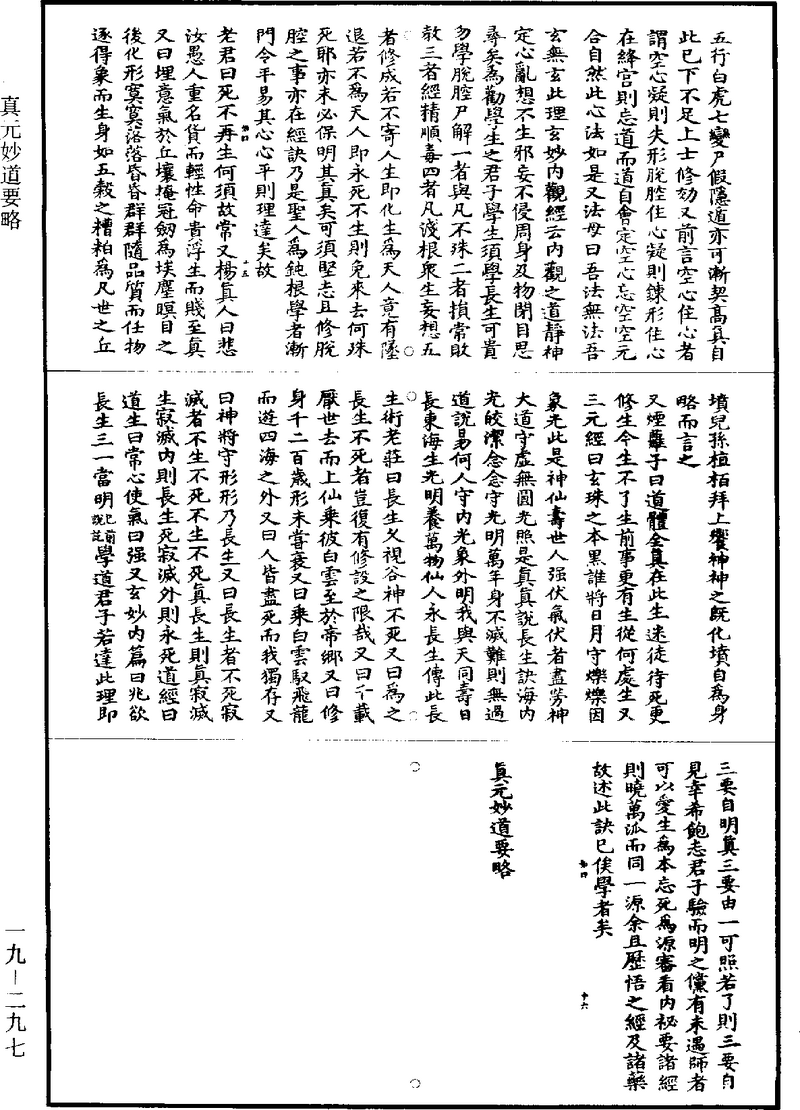 真元妙道要略
五行白虎七變尸假隱遁亦可漸契高真自
此已下不足上士修効又前言空心住心者
謂空心凝則失形脫腔住心凝則鍊形住心
在絳宮則忘道而道自會定空心忘空空元
合自然此心法如是又法母曰吾法無法吾
玄無玄此理玄妙内觀經云内觀之道靜神
定心亂想不生邪妄不侵周身及物閉目思
尋矣為勸學生之君子學生須學長生可貴
勿學脫腔尸解一者與凡不殊二者損常敗
教三者經精順毒四者凡淺根眾生妄想五
者修成若不寄人生即化生為天人竟有墜
退若不為天人即永死不生則免來去何殊
死耶亦未必保明其真矣可須堅志且修脫
腔之事亦在經訣乃是聖人為鈍根學者漸
門令平易其心心平則理達矣故
十五
老君曰死不再生何須故常又楊真人曰悲
汝愚人重名貨而輕性命貴浮生而賤至真
又曰埋意氣於丘壤掩冠劒為埃塵瞑目之
後化形寞寞落落昏昏群群隨品質而任物
逐得象而生身如五穀之糟粕為凡世之丘
墳兒孫植栢拜上饗神神之既化墳自為身
略而言之
又煙蘿子曰道體全真在此生迷徒待死更
修生今生不了生前事更有生從何處生又
三元經曰玄珠之本黑誰將日月守爍爍因
象光此是神仙壽世人强伏氣伏者盡勞神
大道守虛無圓光照是真真說長生訣海内
光皎潔念念守光明萬年身不滅難則無過
道說易何人守内光象外明我與天同壽日
長東海生光明養萬物仙人永長生傳此長
生術老莊曰長生久視谷神不死又曰為之
長生不死者豈復有修設之限哉又曰千載
厭世去而上仙乘彼白雲至於帝鄉又曰修
身千二百歲形未嘗衰又曰乘白雲馭飛龍
而遊四海之外又曰人皆盡死而我獨存又
曰神將守形形乃長生又曰長生者不死寂
滅者不生不死不生不死真長生則真寂滅
生寂滅内則長生死寂滅外則永死道經曰
道生曰常心使氣曰强又玄妙内篇曰兆欲
長生三一當明已前說訖學道君子若達此理即
三要自明真三要由一可照若了則三要自
見幸希飽志君子驗而明之儻有未遇師者
可以愛生為本忘死為源審看内祕要諸經
則曉萬派而同一源余且歷悟之經及諸藥
故述此訣已俟學者矣
十六
真元妙道要略
一九－二九七